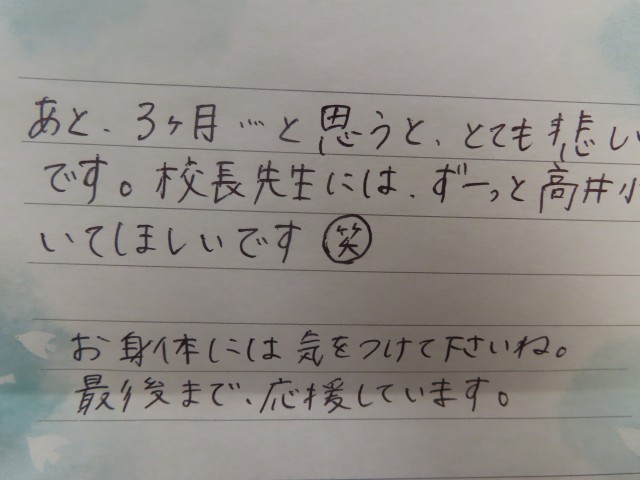 あと、3ヶ月…と思うと、とても悲しい
です。校長先生には、ずーっと高井小
いてほしいです㊗笑
お身体には気をつけて下さいね。
最後まで、応援しています。